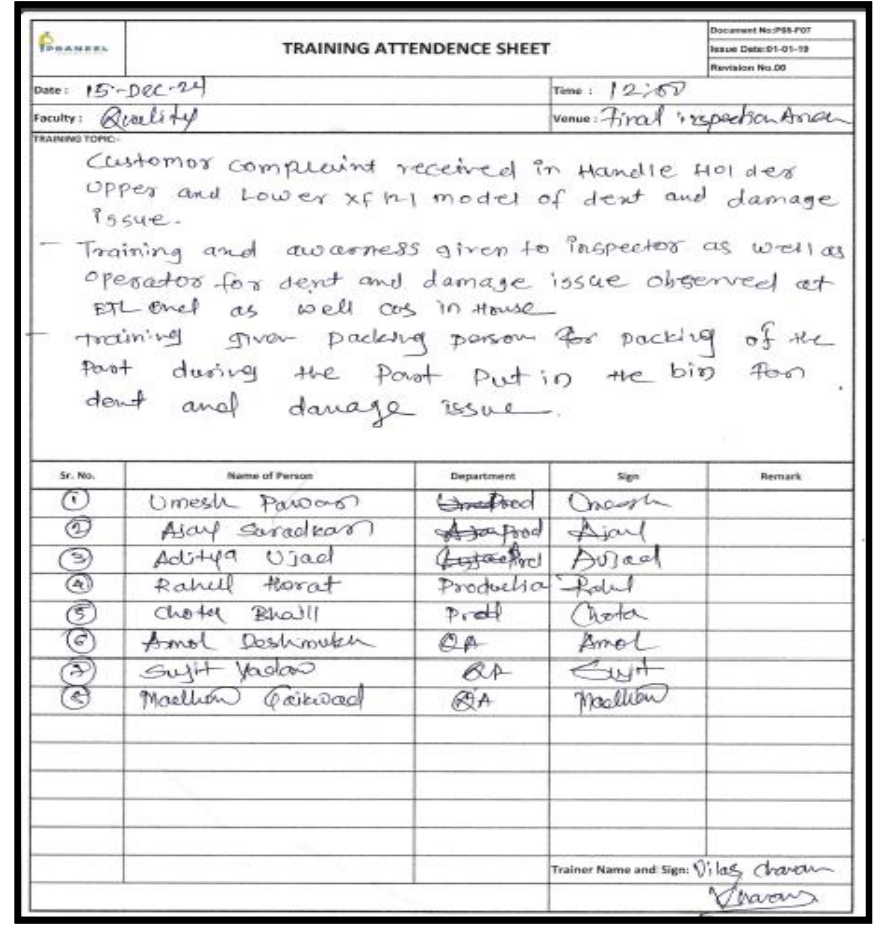 PRANEEL
TRAINING ATTENDENCE SHEET
Document No:P8S-F07
Issue Date:01-01-19
Revision No.00
Date : 15-Dec-24
Time : 12:00
Faculty : Quality
Venue : Final inspection Area
TRAINING TOPIC:-
Customor complaint received in Handle Holder
Upper and Lower model of dent and damage
issue.
- Training and awarness given to inspector as well as
operator for dent and damage issue observed at
end as well as in House
- training given packing person for packing of the
Part during the Part Put in the bin for
dent and damage issue.
Sr. No. Name of Person Department Sign Remark
1 Umesh Pawar Prod Umesh
2 Ajay Saradkar Prod Ajay
3 Aditya Ujad Prd AUjad
4 Rahul Horat Productio Rahul
5 Chota Prod Chota
6 Amol Deshmukh QA Amol
7 Sujit Yadav QA Sujit
8 Madhav Gaikwad QA Madhav
Trainer Name and Sign: Vilas Chavan
Chavan